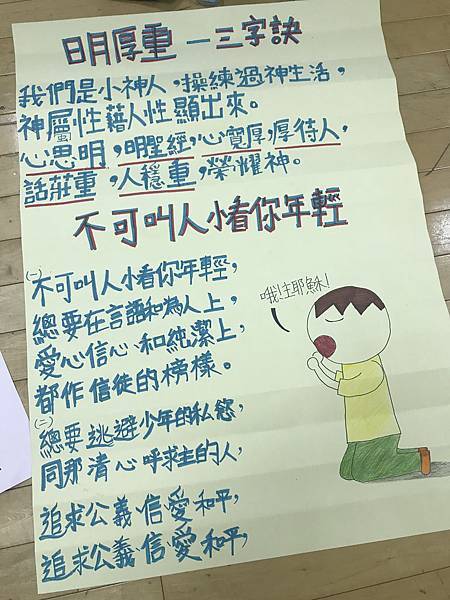 日月厚重 — 三字訣
我們是小神人，操練過神生活，
神屬性藉人性顯出來。
心思明，明聖經，心寬厚，厚待人，
話莊重，人穩重，榮耀神。
不可叫人小看你年輕
(一)
不可叫人小看你年輕，
總要在言語和為人上，
愛心信心、和純潔上，
都作信徒的榜樣。
(二)
總要逃避少年的私慾，
同那清心呼求主的人，
追求公義信愛和平，
追求公義信愛和平，
哦！主耶穌！